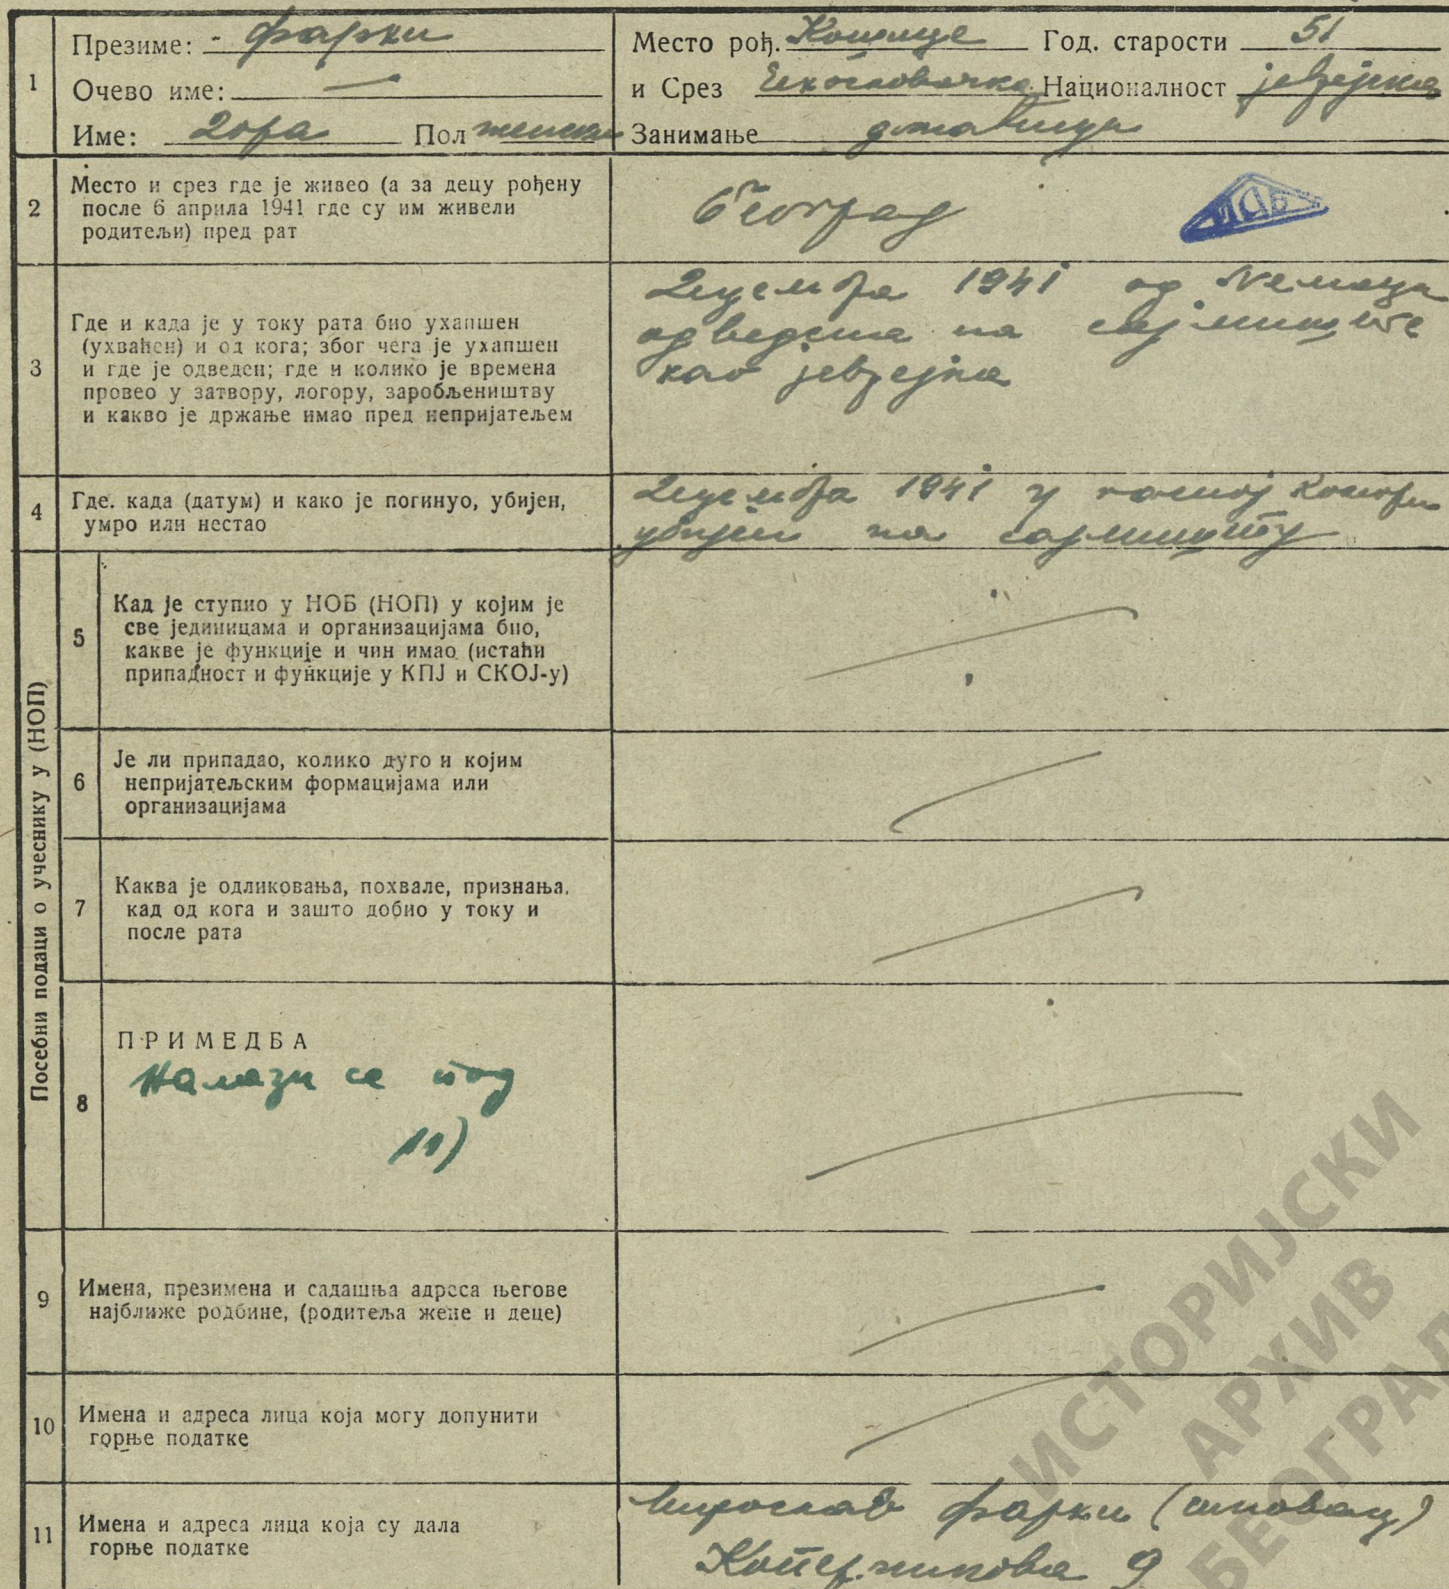 1
Презиме: - Фарки
Очево име: —
Име: Дора Пол женски
Место рођ. Кошице Год. старости 51
и Срез Чехословачка Националност јеврејска
Занимање домаћица
2
Место и срез где је живео (а за децу рођену
после 6 априла 1941 где су им живели
родитељи) пред рат
Београд
3
Где и када је у току рата био ухапшен
(ухваћен) и од кога; због чега је ухапшен
и где је одведен; где и колико је времена
провео у затвору, логору, заробљеништву
и какво је држање имао пред непријатељем
Децембра 1941 од Немаца
одведена на сајмиште
као јеврејка
4
Где. када (датум) и како је погинуо, убијен,
умро или нестао
Децембра 1941 у гасној комори
убијен на сајмишту
Посебни подаци о учеснику у (НОП)
5
Кад је ступио у НОБ (НОП) у којим је
све јединицама и организацијама био,
какве је функције и чин имао (истаћи
припадност и функције у КПЈ и СКОЈ-у)
6
Је ли припадао, колико дуго и којим
непријатељским формацијама или
организацијама
7
Каква је одликовања, похвале, признања,
кад од кога и зашто добио у току и
после рата
8
ПРИМЕДБА
Налази се под
11)
9
Имена, презимена и садашња адреса његове
најближе родбине, (родитеља жене и деце)
10
Имена и адреса лица која могу допунити
горње податке
11
Имена и адреса лица која су дала
горње податке
Мирослав Фарки (синовац)
Коперникова 9
ИСТОРИЈСКИ
АРХИВ
БЕОГРАД